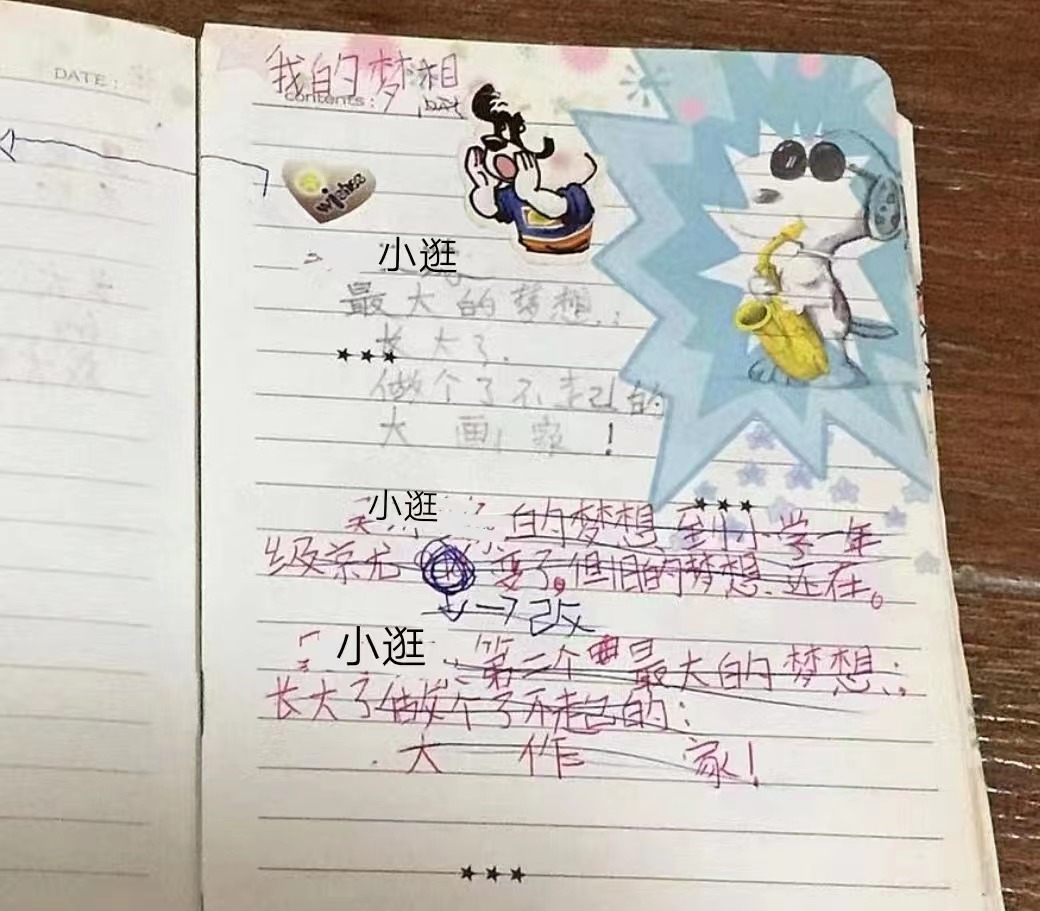 DATE:
我的梦想
contents:
wishes
小逛
最大的梦想:
长大了.
做个了不起的
大画家!
小逛 的梦想到小学一年
级 变了。但旧的梦想还在。
改
小逛 第二个最大的梦想:
长大了做个了不起的:
大作家!